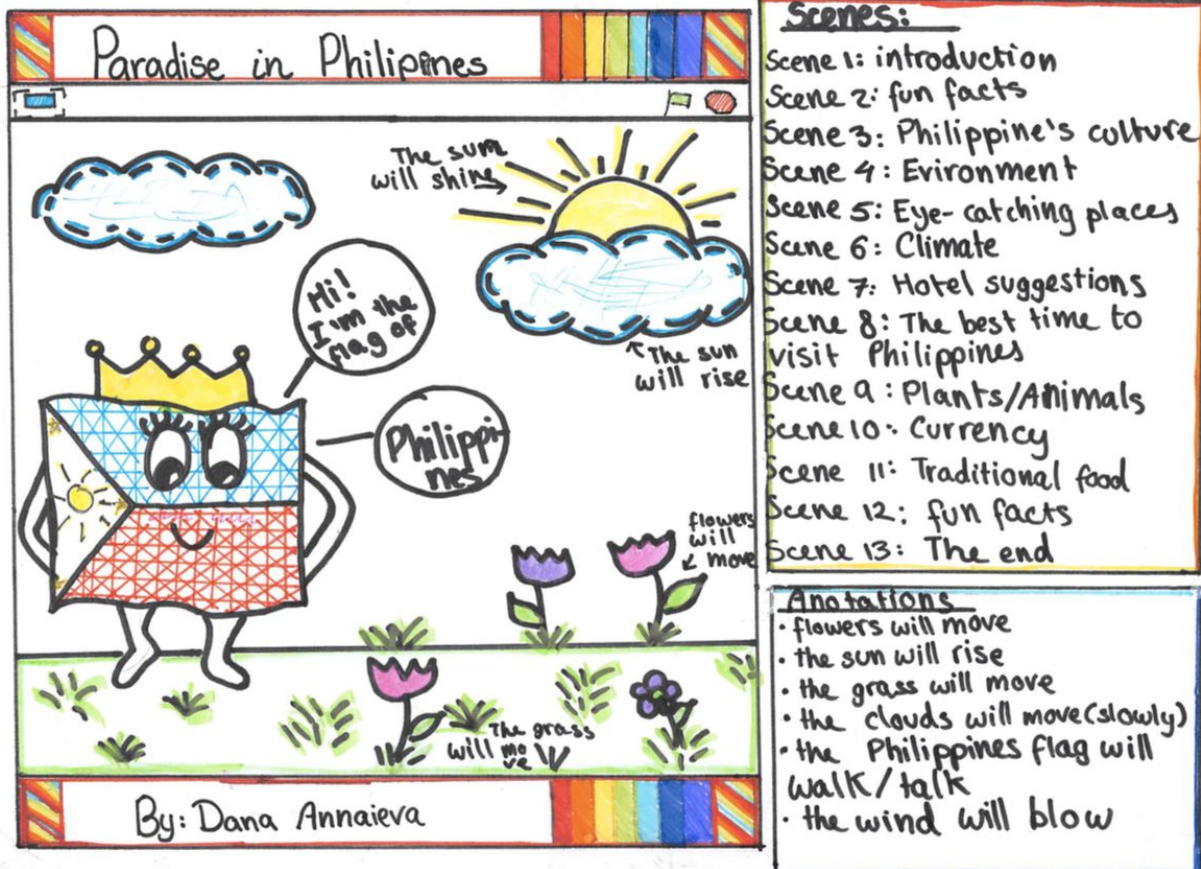 Paradise in Philipines
The sum
will shine
Hi!
I'm the
flag of
Philippi-
nes
The sun
will rise
flowers
will
move
The grass
will mo
ve
By: Dana Annaieva
Scenes:
Scene 1: introduction
Scene 2: fun facts
Scene 3: Philippine's culture
Scene 4: Evironment
Scene 5: Eye-catching places
Scene 6: Climate
Scene 7: Hotel suggestions
Scene 8: The best time to
visit Philippines
Scene 9: Plants/Animals
Scene 10: Currency
Scene 11: Traditional food
Scene 12: fun facts
Scene 13: The end
Anotations
· flowers will move
· the sun will rise
· the grass will move
· the clouds will move(slowly)
· the Philippines flag will
walk/talk
· the wind will blow